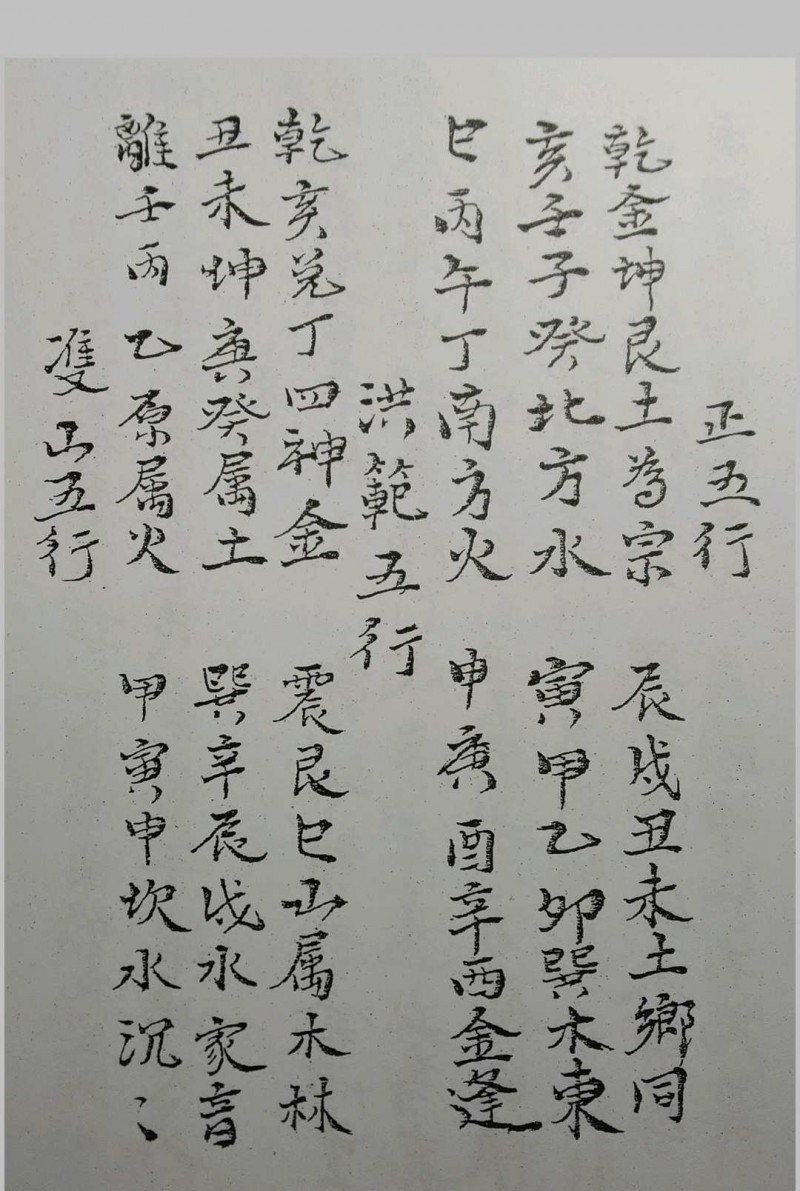 正五行
乾金坤艮土為宗 辰戌丑未土鄉同
亥壬子癸北方水 寅甲乙卯巽木東
巳丙午丁南方火 申庚酉辛西金逢
洪範五行
乾亥兌丁四神金 震艮巳山属木林
丑未坤庚癸属土 巽辛辰戌水家音
離壬丙乙原属火 甲寅申坎水沉〻
双山五行